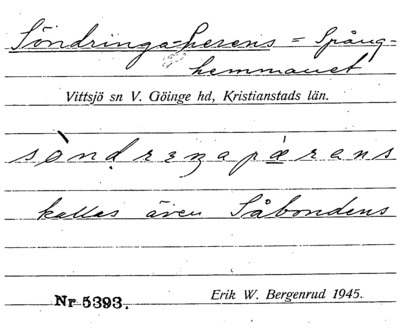 Söndringa-Perens = Spång-
hemmanet
Vittsjö sn V. Göinge hd, Kristianstads län.
sòndreŋapærans
kallas även Såbondens
Nr 5393.
Erik W. Bergenrud 1945.